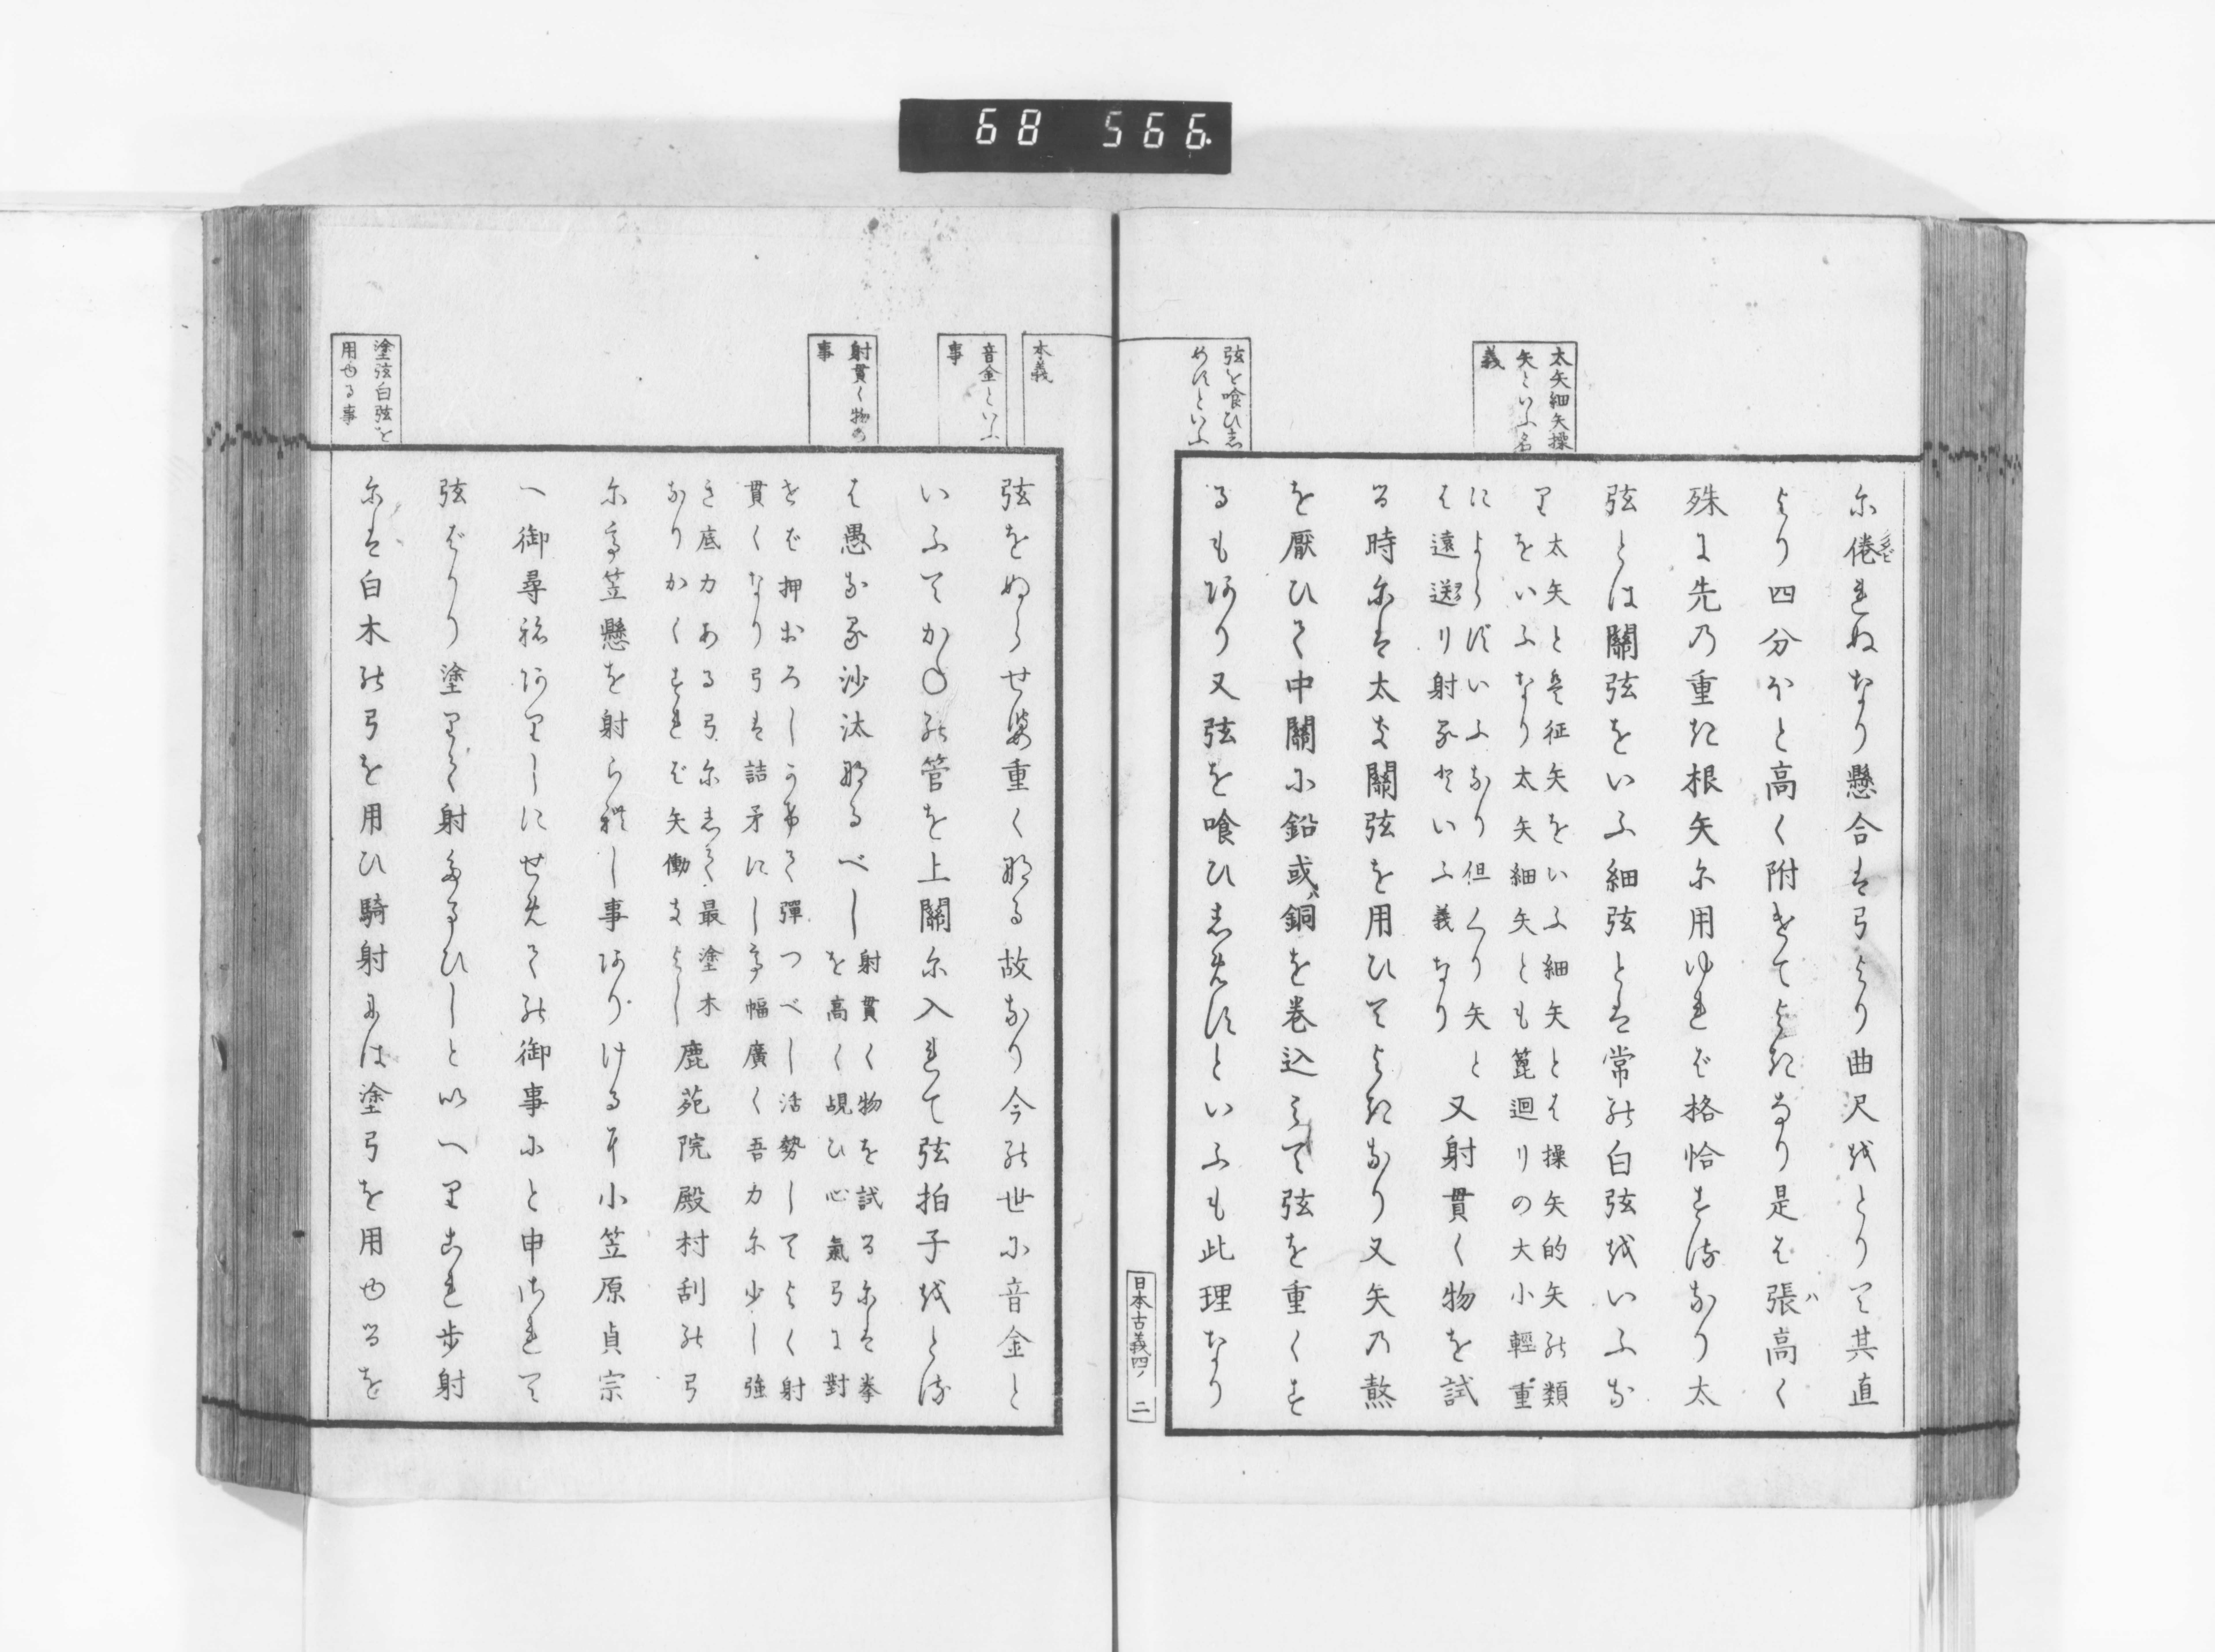 68 566.
太矢細矢操
矢といふ名
義
弦を喰ひし
めずといふ
尓倦れぬなり懸合は弓より曲尺越とりて其直
より四分ほと高く附けてよきなり是は張高く
殊に先乃重き根矢尓用ゆれば格恰する なり太
弦とは關弦をいふ細弦とは常の白弦越いふな
り
太矢とは征矢をいふ細矢とは操矢的矢の類
をいふなり太矢細矢とも箆廻りの大小輕重
によらずいふなり但くり矢と
は遠送り射る をいふ義なり
又射貫く物を試
る時尓は太き關弦を用ひてよきなり又矢乃熬
を厭ひて中關に鉛或は銅を巻込みて弦を重くす
るもあり又弦を喰ひしめずといふも此理なり
日本古義四ノ 二
本義
音金といふ
事
射貫く物の
事
塗弦白弦を
用ゆる事
弦をぬらせば重くなる故なり今の世に音金と
いふてか〇の管を上關尓入れて弦拍子越とる
は愚なる沙汰なるべし
射貫く物を試る尓は拳
を高く覘ひ心氣弓に對
せば押おろしうけて彈つべし活勢してよく射
貫くなり弓は詰矛にし て幅廣く吾力尓少し強
き底力ある弓尓して最塗木
なりかくすれば矢働きよし
鹿苑院殿村刮の弓
尓て笠懸を射られし事ありける 小笠原貞宗
へ御尋ねありしにせめての御事にと申されて
弦ばかり塗りて射 ひしと以へりされ歩射
尓は白木の弓を用ひ騎射には塗弓を用ゆるを